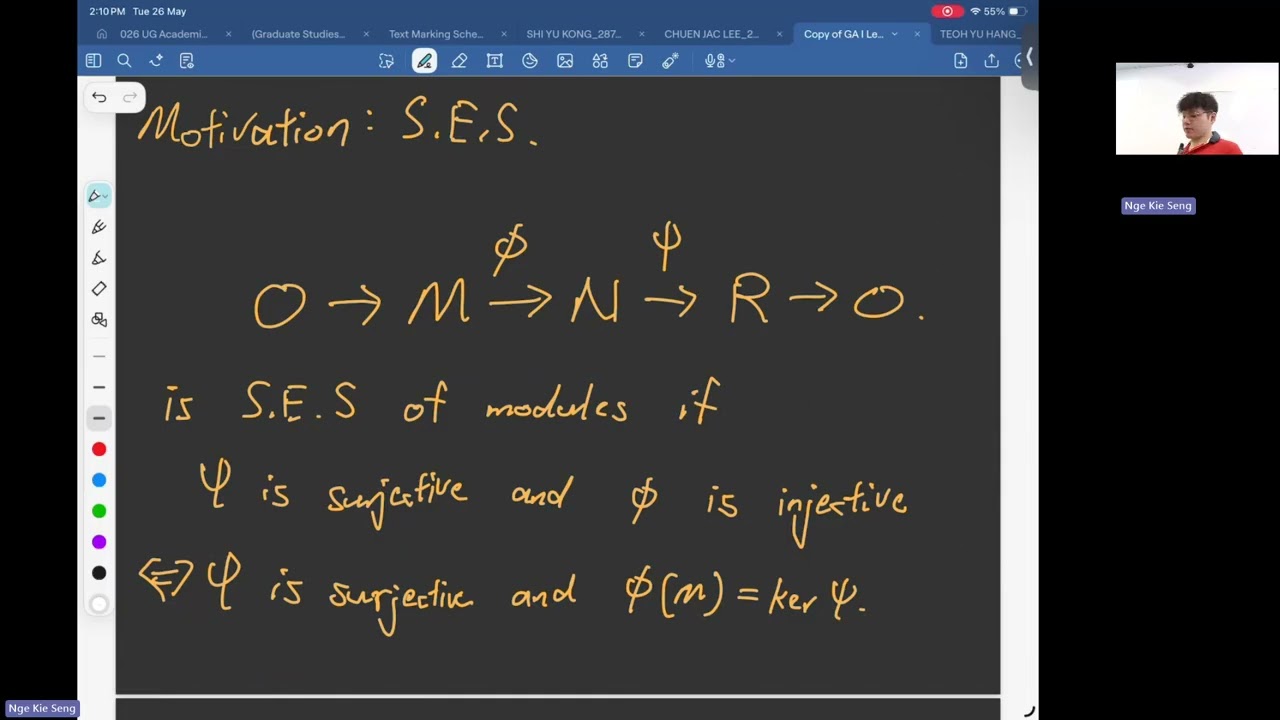 2:10 PM Tue 26 May
55%
026 UG Academi...
(Graduate Studies...
Text Marking Sche...
SHI YU KONG_287...
CHUEN JAC LEE_2...
Copy of GA I Le...
TEOH YU HANG_
Motivation: S.E.S.
ϕ ψ
O → M → N → R → O.
is S.E.S of modules if
ψ is surjective and ϕ is injective
⟺ ψ is surjective and ϕ(m) = ker ψ.
Nge Kie Seng
Nge Kie Seng